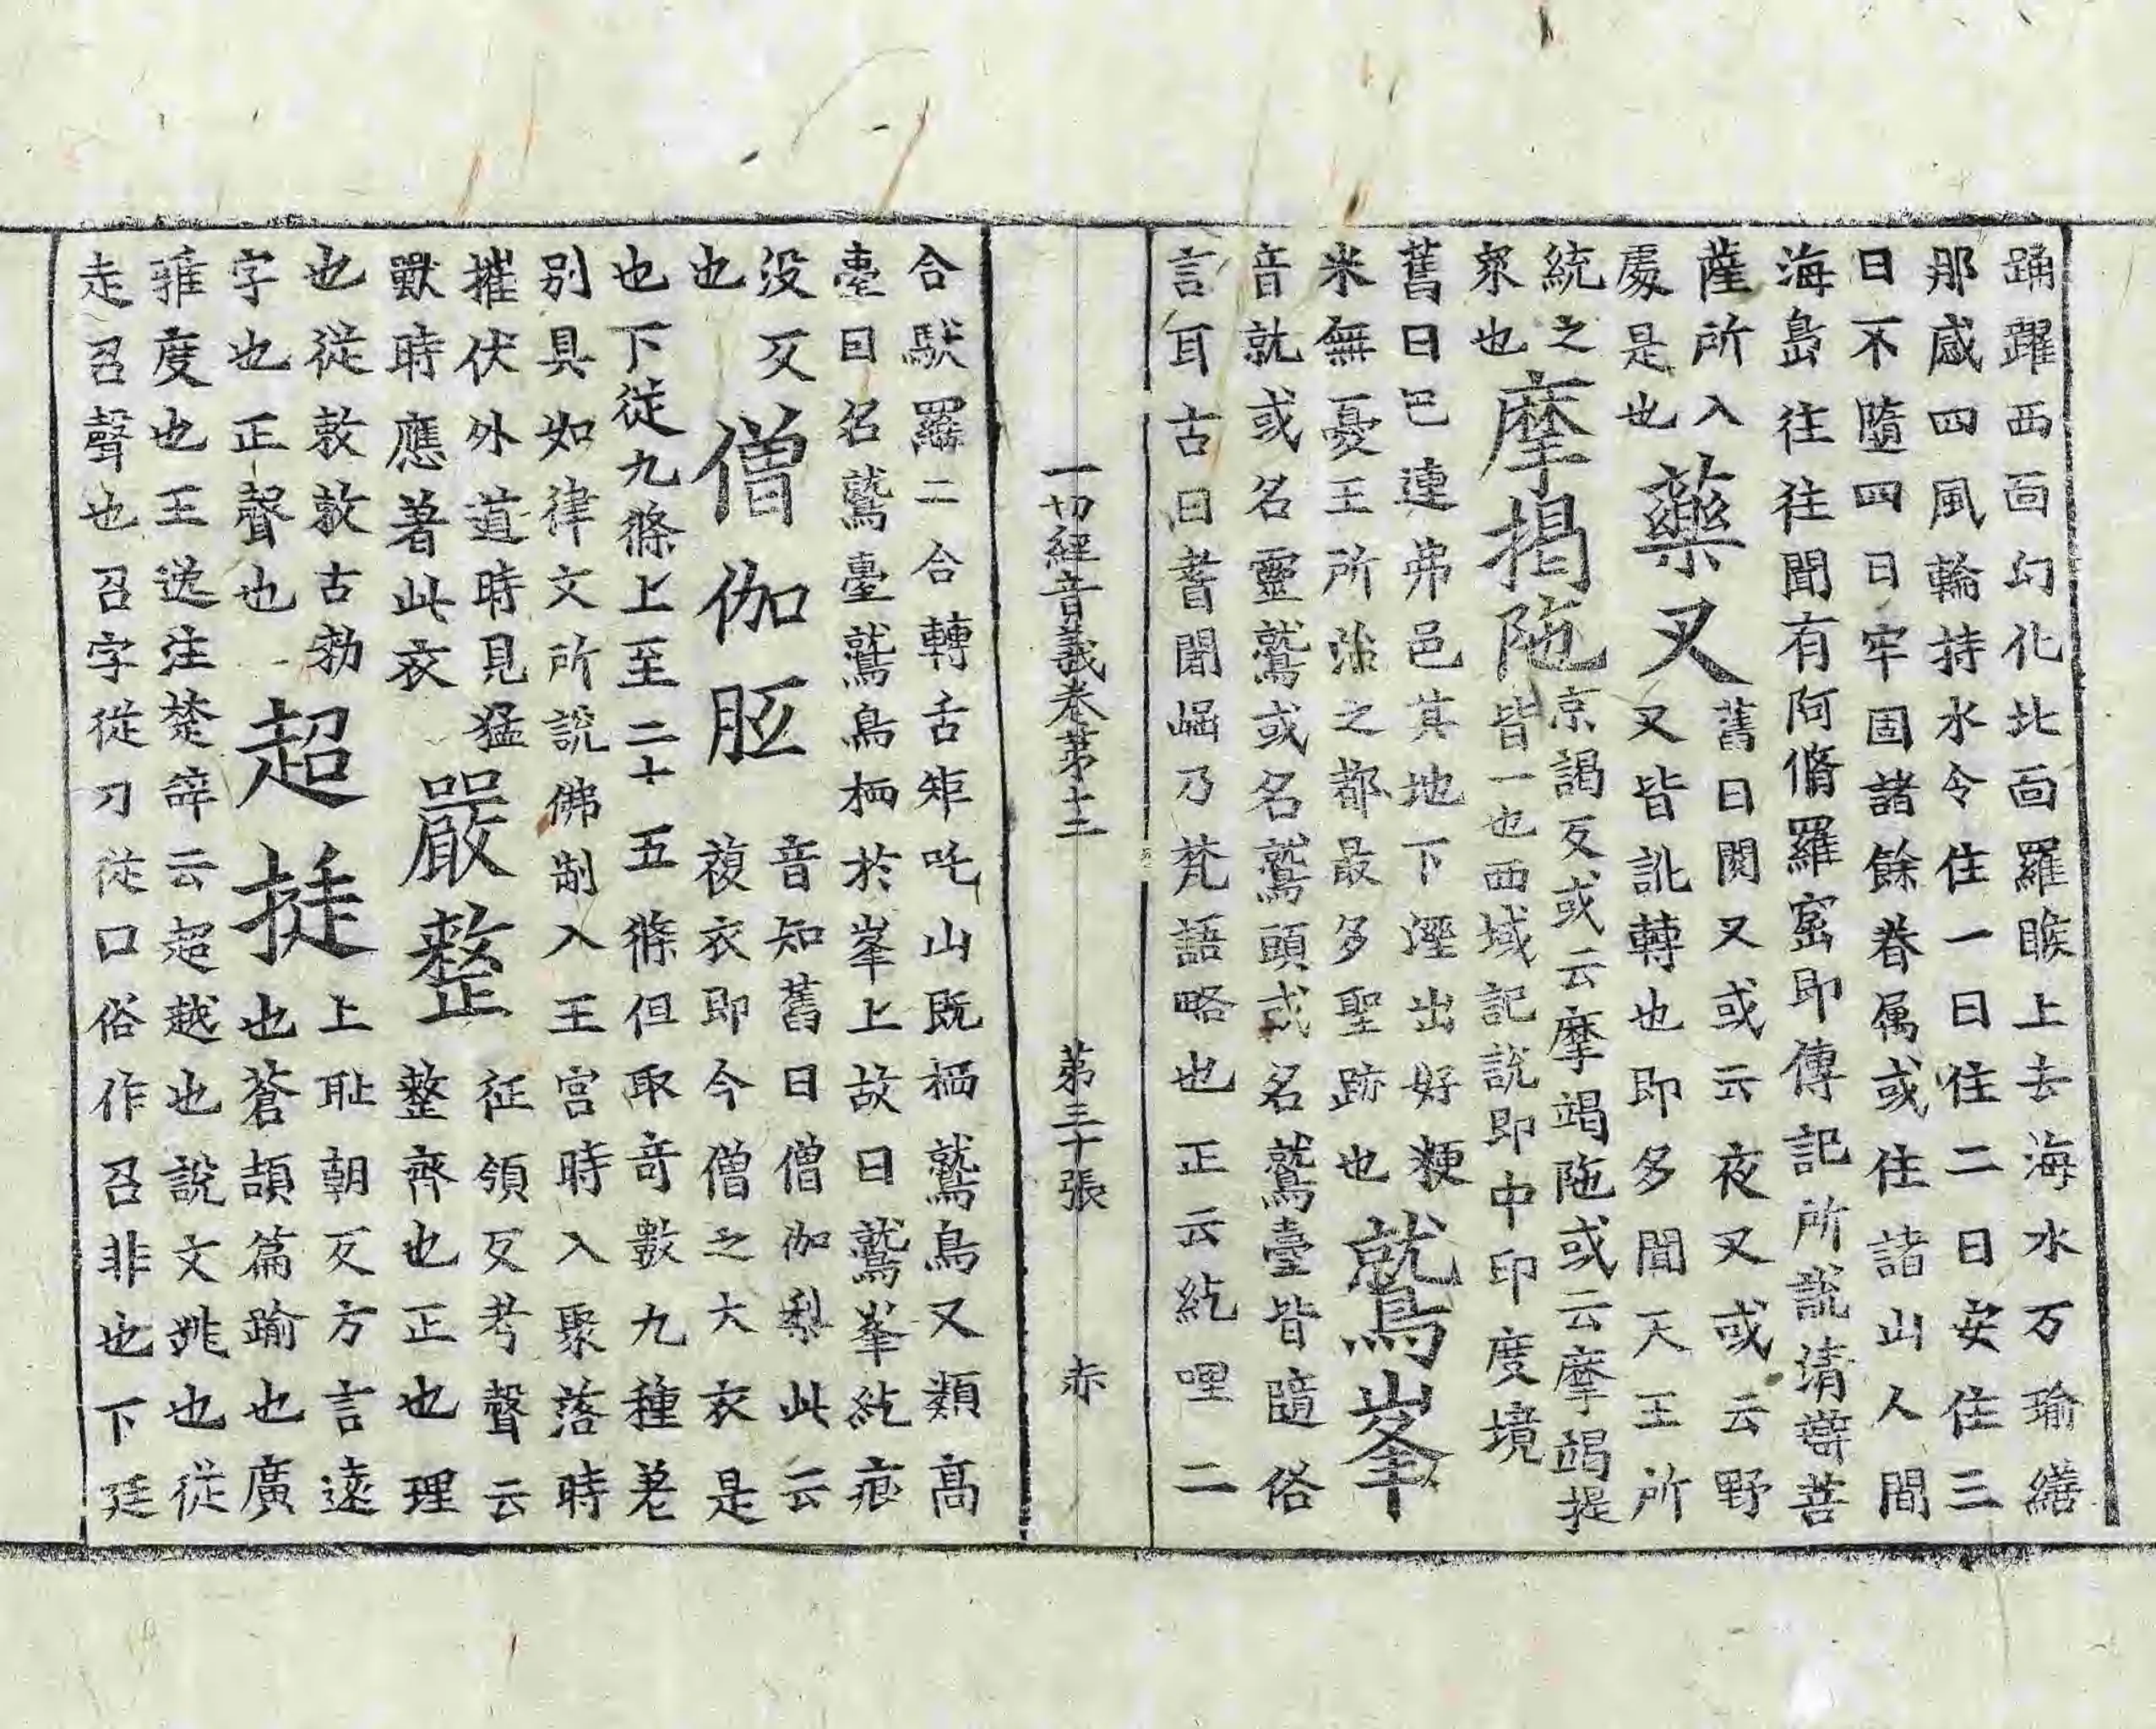 踊躍西面幻化北面羅睺上去海水万瑜繕
那感四風輪持水令住一日住二日安住三
日不隨四日牢固諸餘眷属或住諸山人間
海島往往往聞有阿脩羅窟即傳記所說清辯菩
薩所入
處是也
藥叉
舊曰閱叉或云夜叉或云野
叉皆訛轉也即多聞天王所
統之
衆也
摩揭陁
京謁反或云摩竭陁或云摩竭提
皆一也西域記說即中印度境
舊曰巴連弗邑其地下溼出好粳
米無憂王所治之都最多聖跡也
鷲峯
音就或名靈鷲或名鷲頭或名鷲臺皆隨俗
言耳古曰耆闍崛乃梵語略也正云紇哩二
一切經音義卷苐十二 苐三十張 赤
合馱羅二合轉舌矩吒山既栖鷲鳥又類高
臺曰名鷲臺鷲鳥栖於峯上故曰鷲峯紇痕
没反
也
僧伽胝
音知舊曰僧伽梨此云
複衣即今僧之大衣是
也下從九條上至二十五條但取奇數九種差
别具如律文所說佛制入王宮時入聚落時
摧伏外道時見猛
獸時應著此衣
嚴整
征領反考聲云
整齊也正也理
也從敕敕古勑
字也正聲也
超挺
上耻朝反方言遠
也蒼頡篇踰也廣
雅度也王逸注楚辭云超越也說文跳也從
走召聲也召字從刀從口俗作召非也下廷